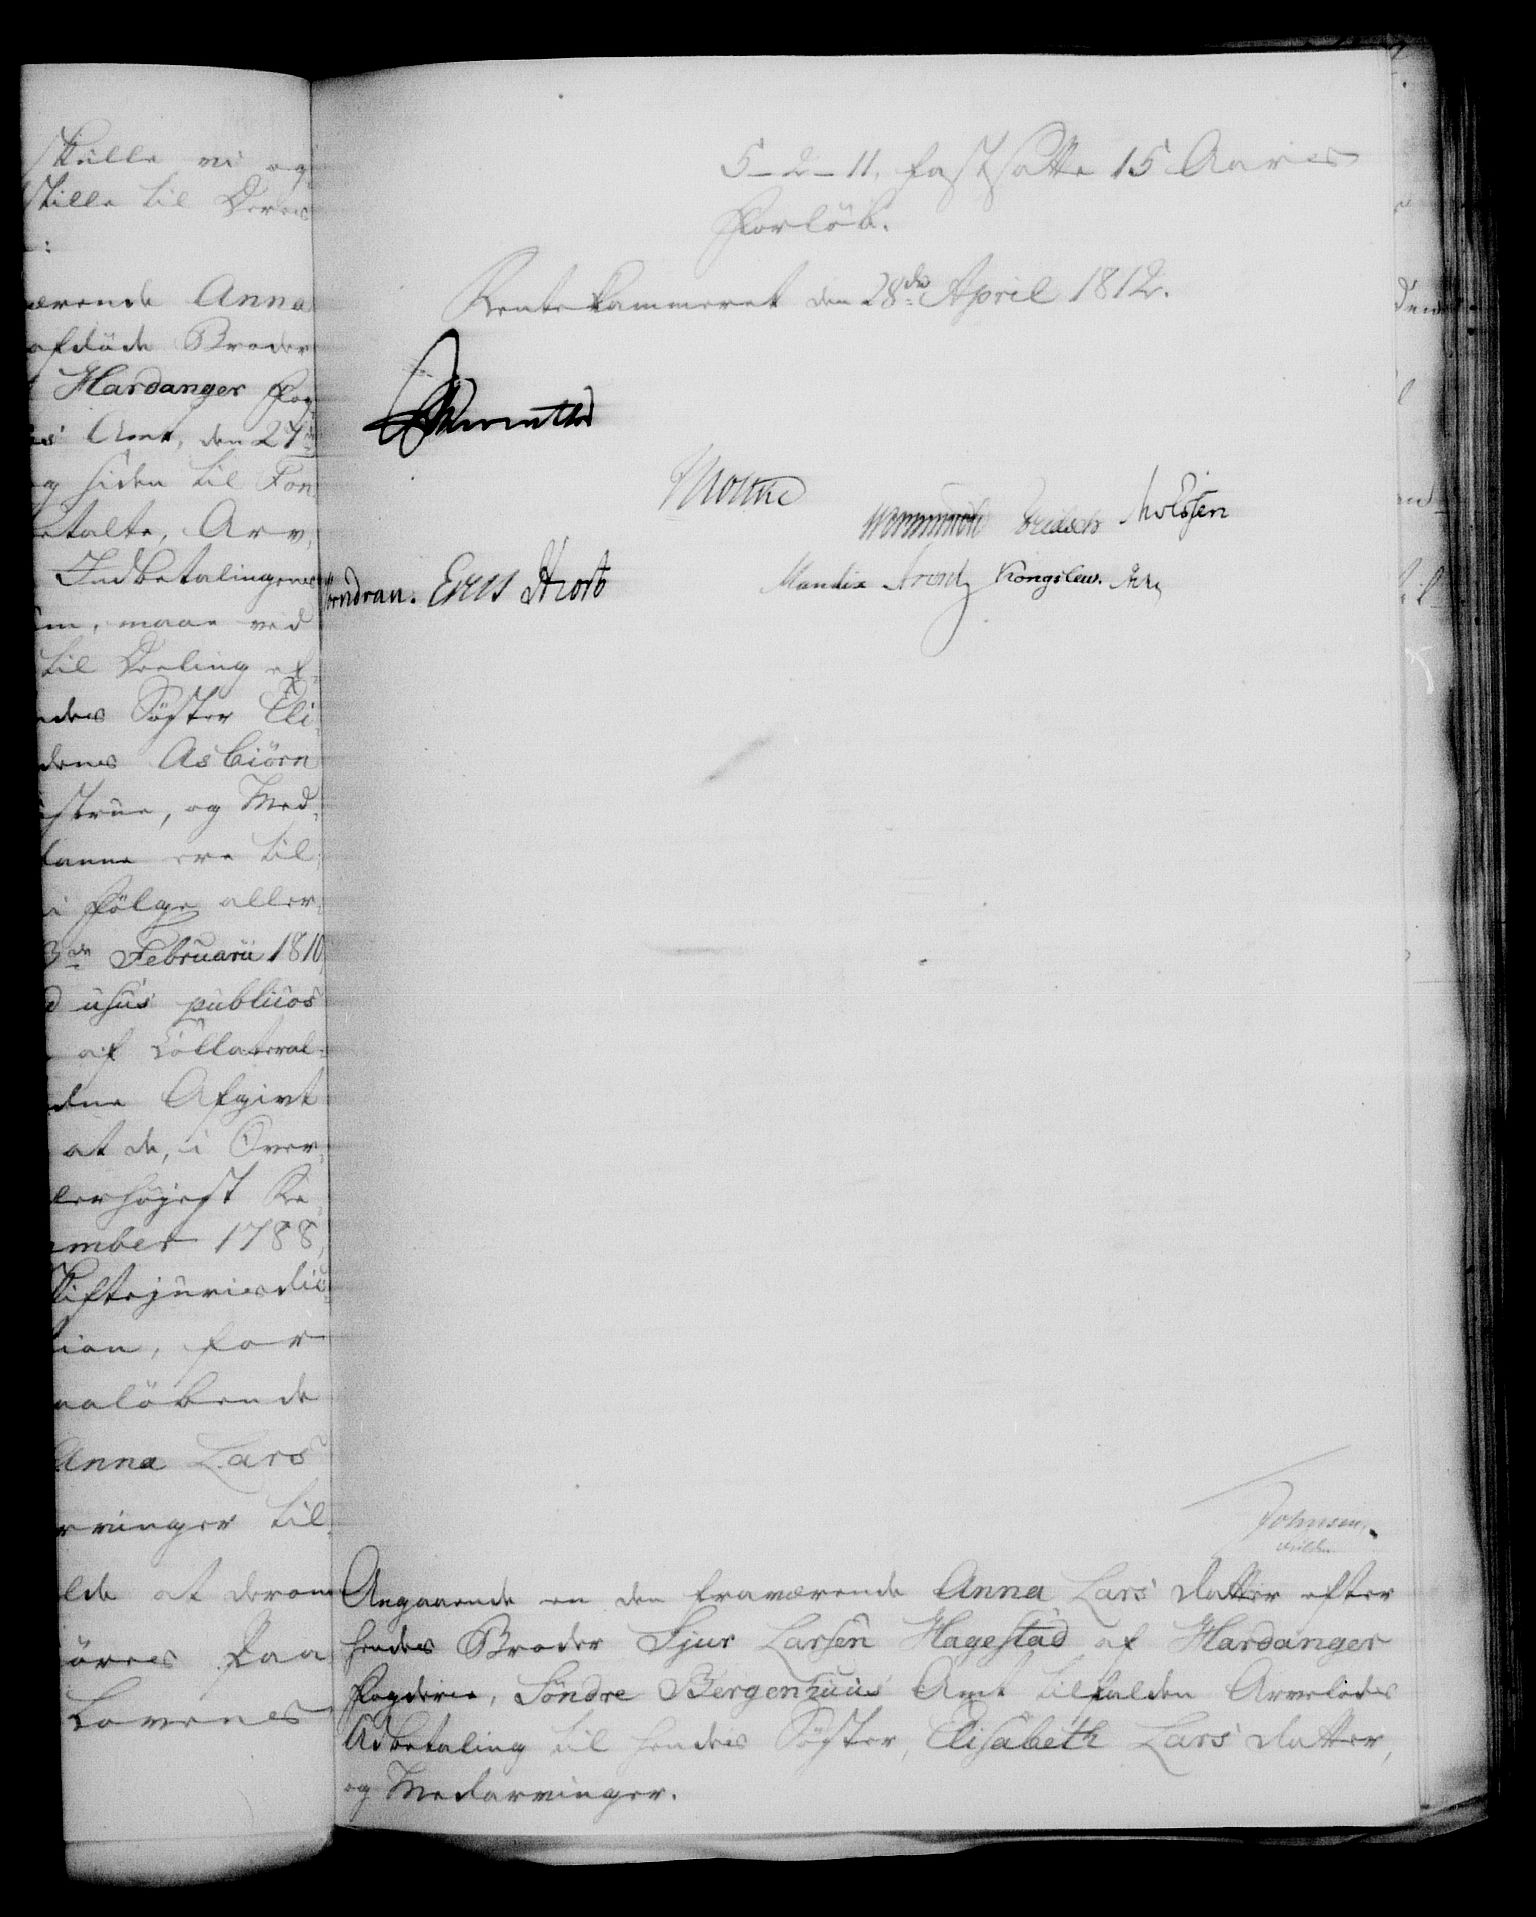 skulle vi og
stille til Deres
:
ærende Anna
afdöde Broder
Hardanger Fog
Amt, den 27de
og siden til Fon
betalte, Arv,
Indbetalingens
maae ved
til Deeling
Söster Eli
Asbiörn
og Med
kanne ere til
i Fölge aller
3de Februarii 1810
ad usus publicos
af Collateral
Afgivt
at de, i Over
lerhöjest Re
ember 1788,
Skiftejurisdic
tion, for
aalöbende
Anna Lars
rvinger til
at derom
öres paa
Lovenes
5-2-11, fastsatte 15 Aares
Forlöb.
Rentekammeret den 28de April 1812.
Moltke
Wormskiold Fridsch Molssen
Mandix Arentz Kongslew.
Hiort
Johnsen.
Angaaende en den fraværende Anna Lars Datter efter
hendes Broder Sjur Larsen Hagestad af Hardanger
Fogderie, Söndre Bergenhuus Amt tilfalden Arvelods
Udbetaling til hendes Söster, Elisabeth Lars Datter,
og Medarvinger.